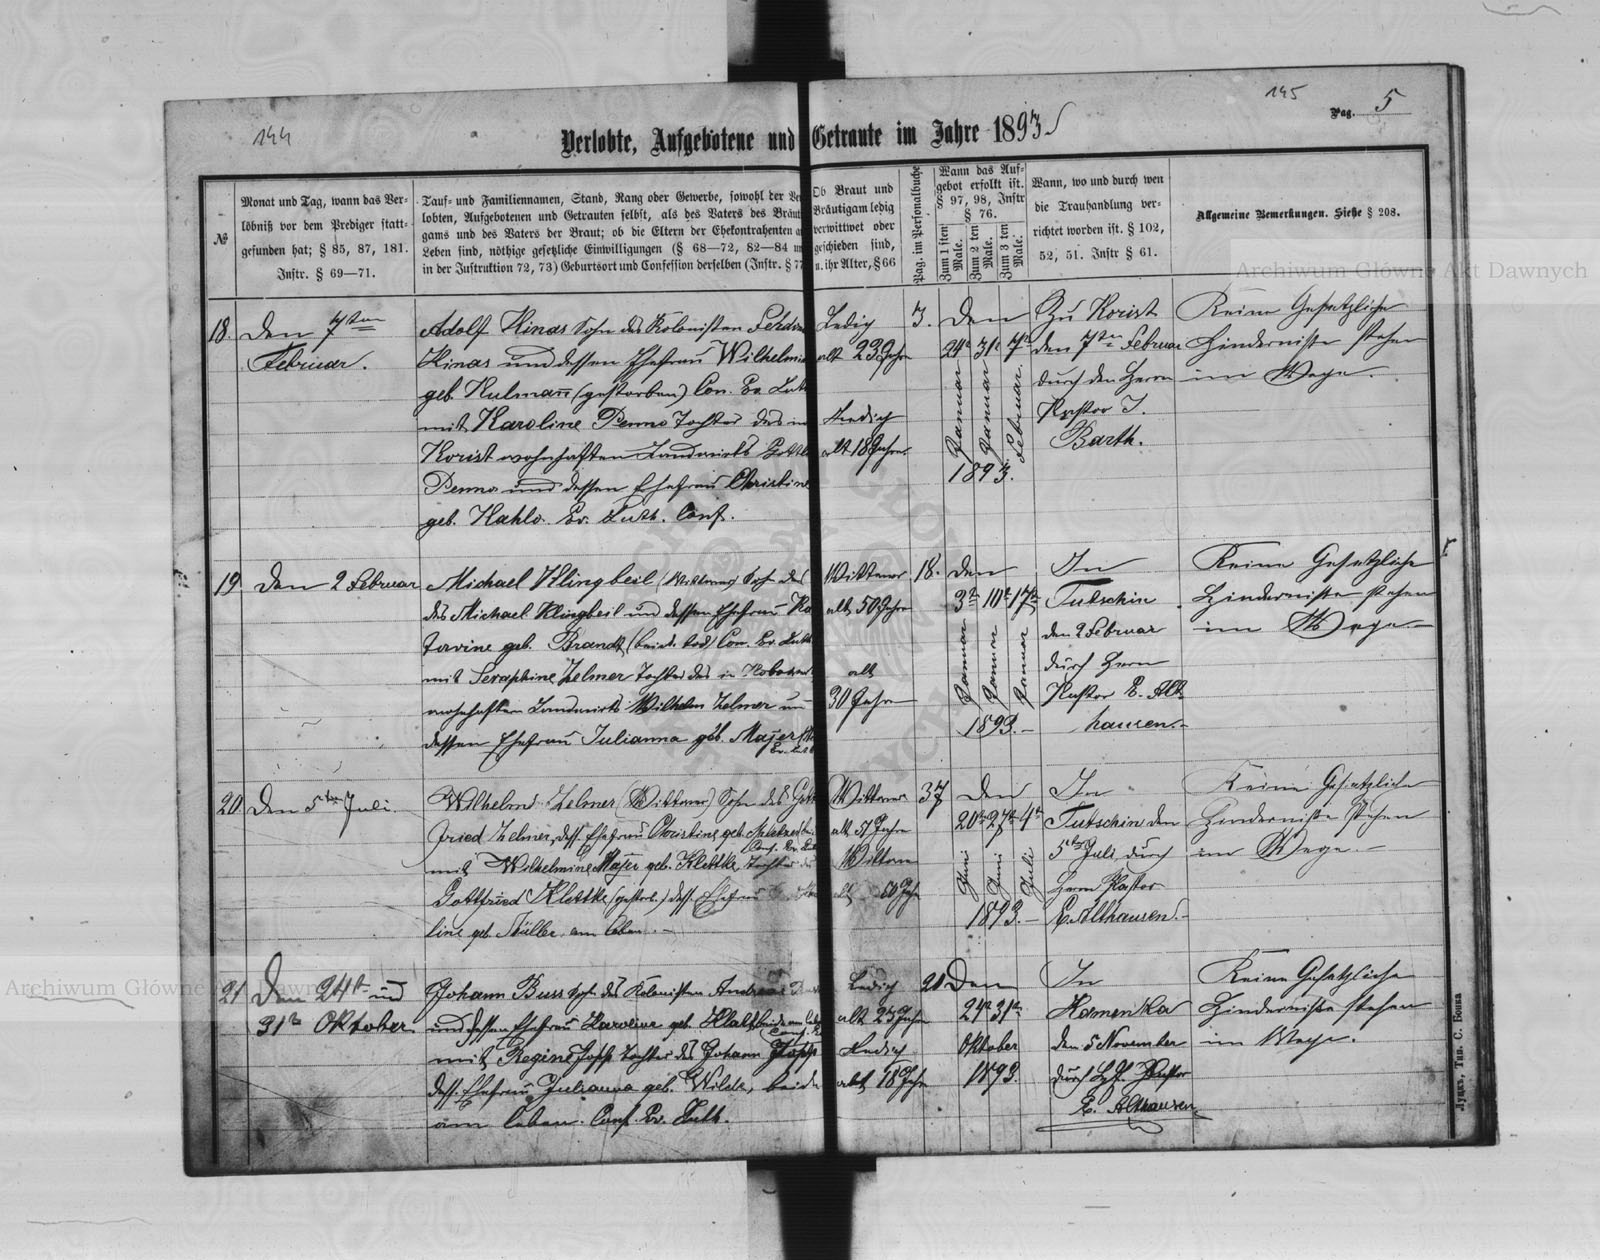 144
145
Pag. 5
Verlobte, Aufgebotene und Getraute im Jahre 1893
№
Monat und Tag, wann das Ver-
löbniß vor dem Prediger statt-
gefunden hat; § 85, 87, 181.
Instr. § 69—71.
Tauf- und Familiennamen, Stand, Rang oder Gewerbe, sowohl der Ver
lobten, Aufgebotenen und Getrauten selbst, als des Vaters des Bräut
gams und des Vaters der Braut; ob die Eltern der Ehekontrahenten a
Leben sind, nöthige gesetzliche Einwilligungen (§ 68—72, 82—84 un
in der Instruktion 72, 73) Geburtsort und Confession derselben (Instr. § 77
Ob Braut und
Bräutigam ledig
verwittwet oder
geschieden sind,
u. ihr Alter, § 66
Pag. im Personalbuche
Wann das Auf-
gebot erfolkt ist.
§ 97, 98, Instr
§ 76.
Zum 1 sten Male.
Zum 2 ten Male.
Zum 3 ten Male.
Wann, wo und durch wen
die Trauhandlung ver-
richtet worden ist. § 102,
52, 51. Instr § 61.
Allgemeine Bemerkungen. Siehe § 208.
18.
Den 7ten
Februar.
Adolf Hinas Sohn des Kolonisten
Hinas und dessen Ehefrau Wilhelmi
geb. Kulmann (gestorben) Con. Ev. Luth
mit Karoline Penno Tochter des in
Korist wohnhaften Landwirts Gottl
Penno und dessen Ehefrau Christine
geb. Kahlo. Ev. Luth. Conf.
Ledig
alt 23 Jahre
Ledig
alt 18 Jahre
3.
Den
24t 31t 7t
Januar
Januar
Februar.
1893.
Zu Korist
den 7ten Februar
durch den Herrn
Pastor J.
Barth.
Keine Gesetzliche
Hindernisse stehen
im Wege.
19.
Den 2 Februar
Michael Klingbeil (Wittwer) Sohn des
des Michael Klingbeil und dessen Ehefrau Ka
tarine geb. Brandt, (beide tod) Con. Ev. Luth
mit Seraphine Zelmer Tochter des in
wohnhaften Landwirts Wilhelm Zelmer un
dessen Ehefrau Julianna geb. Majer
Wittwer
alt 50 Jahre
alt
30 Jahre
18.
Den
3t 10t 17t
Januar
Januar
Januar
1893.
In
Tutschin
den 2 Februar
durch Herrn
Pastor E. Alt-
hausen.
Keine Gesetzliche
Hindernisse stehen
im Wege
20.
Den 5ten Juli.
Wilhelm Zelmer (Wittwer) Sohn des Gott
fried Zelmer, dess. Ehefrau Christine geb.
mit Wilhelmine Majer geb. Klettke, Tochter des
Gottfried Klettke (gestorb.) dess. Ehefrau
line geb. Müller am Leben.
Wittwer
alt 51 Jahre
Wittwe
alt Jahr
37
Den
20t 27t 4t
Juni
Juni
Juli
1893.
In
Tutschin den
5ten Juli durch
Herrn Pastor
E. Althausen.
Keine Gesetzliche
Hindernisse stehen
im Wege.
21
Den 24t und
31t Oktober.
Johann Buss Sohn des Kolonisten Andreas
und dessen Ehefrau Karoline geb. Klatt, beide am Leben
mit Regine Jopp Tochter des Johann Jopp
dess. Ehefrau Julianna geb. Wilde, beide
am Leben. Conf. Ev. Luth.
Ledig
alt 23 Jahre
Ledig
alt 18 Jahr
20
Den
24t 31t
Oktober
1893.
In
Hamenka
den 5 November
durch H. Pastor
E. Althausen
Keine Gesetzliche
Hindernisse stehen
im Wege.
Луцкъ, Тип. С. Бонка
Archiwum Główne Akt Dawnych
Archiwum Główne Akt Dawnych